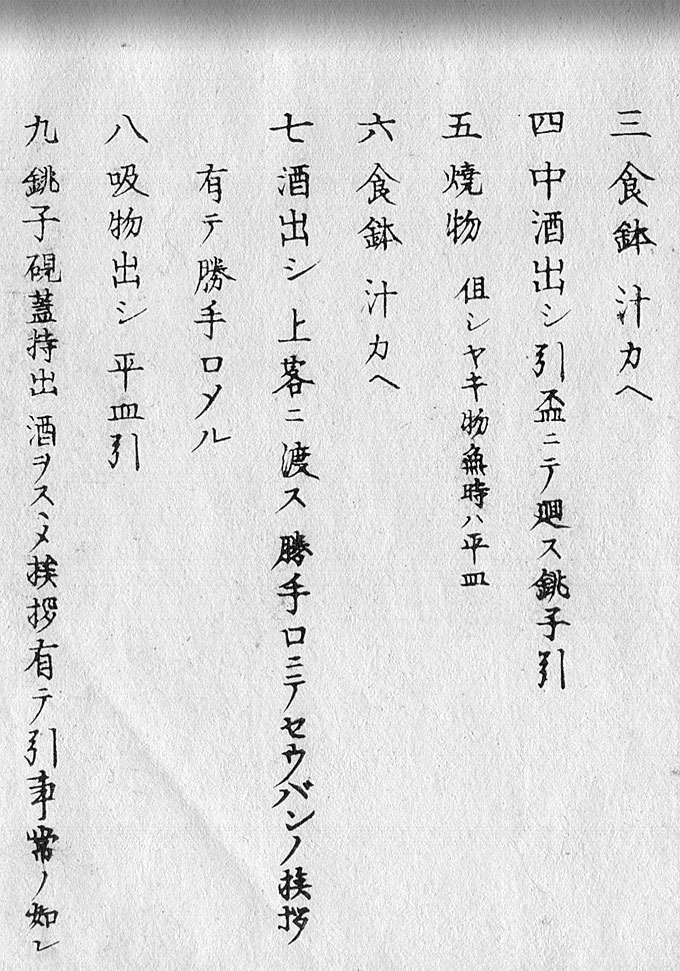 三 食鉢 汁カヘ
四 中酒出シ 引盃ニテ廻ス 銚子引
五 焼物 但シヤキ物無時ハ平皿
六 食鉢 汁カヘ
七 酒出シ 上客ニ渡ス 勝手口ニテセウバンノ挨拶
有テ勝手口〆ル
八 吸物出シ 平皿引
九 銚子硯蓋持出 酒ヲスヽメ挨拶有テ引事常ノ如シ